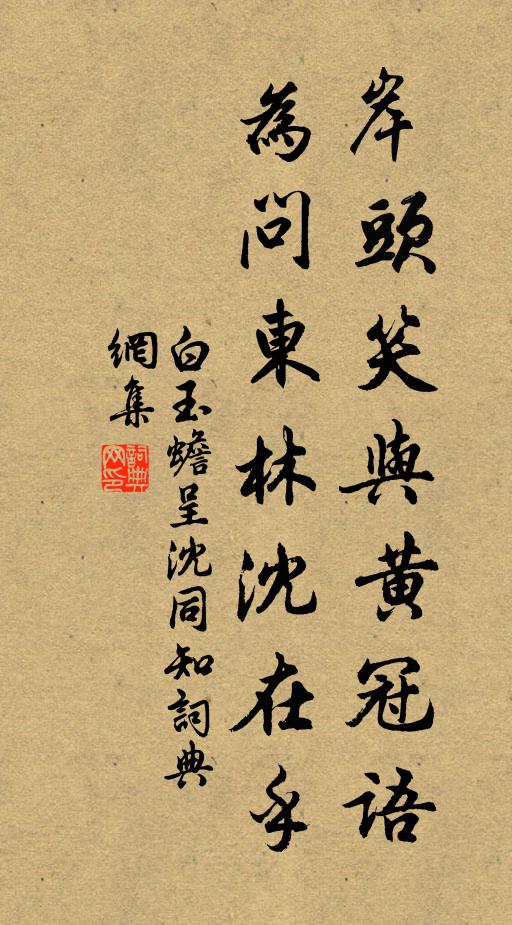 岸頭笑與黃冠語
為問東林沈在乎
白玉蟾呈沈同知詞典
網集
詞典
网印